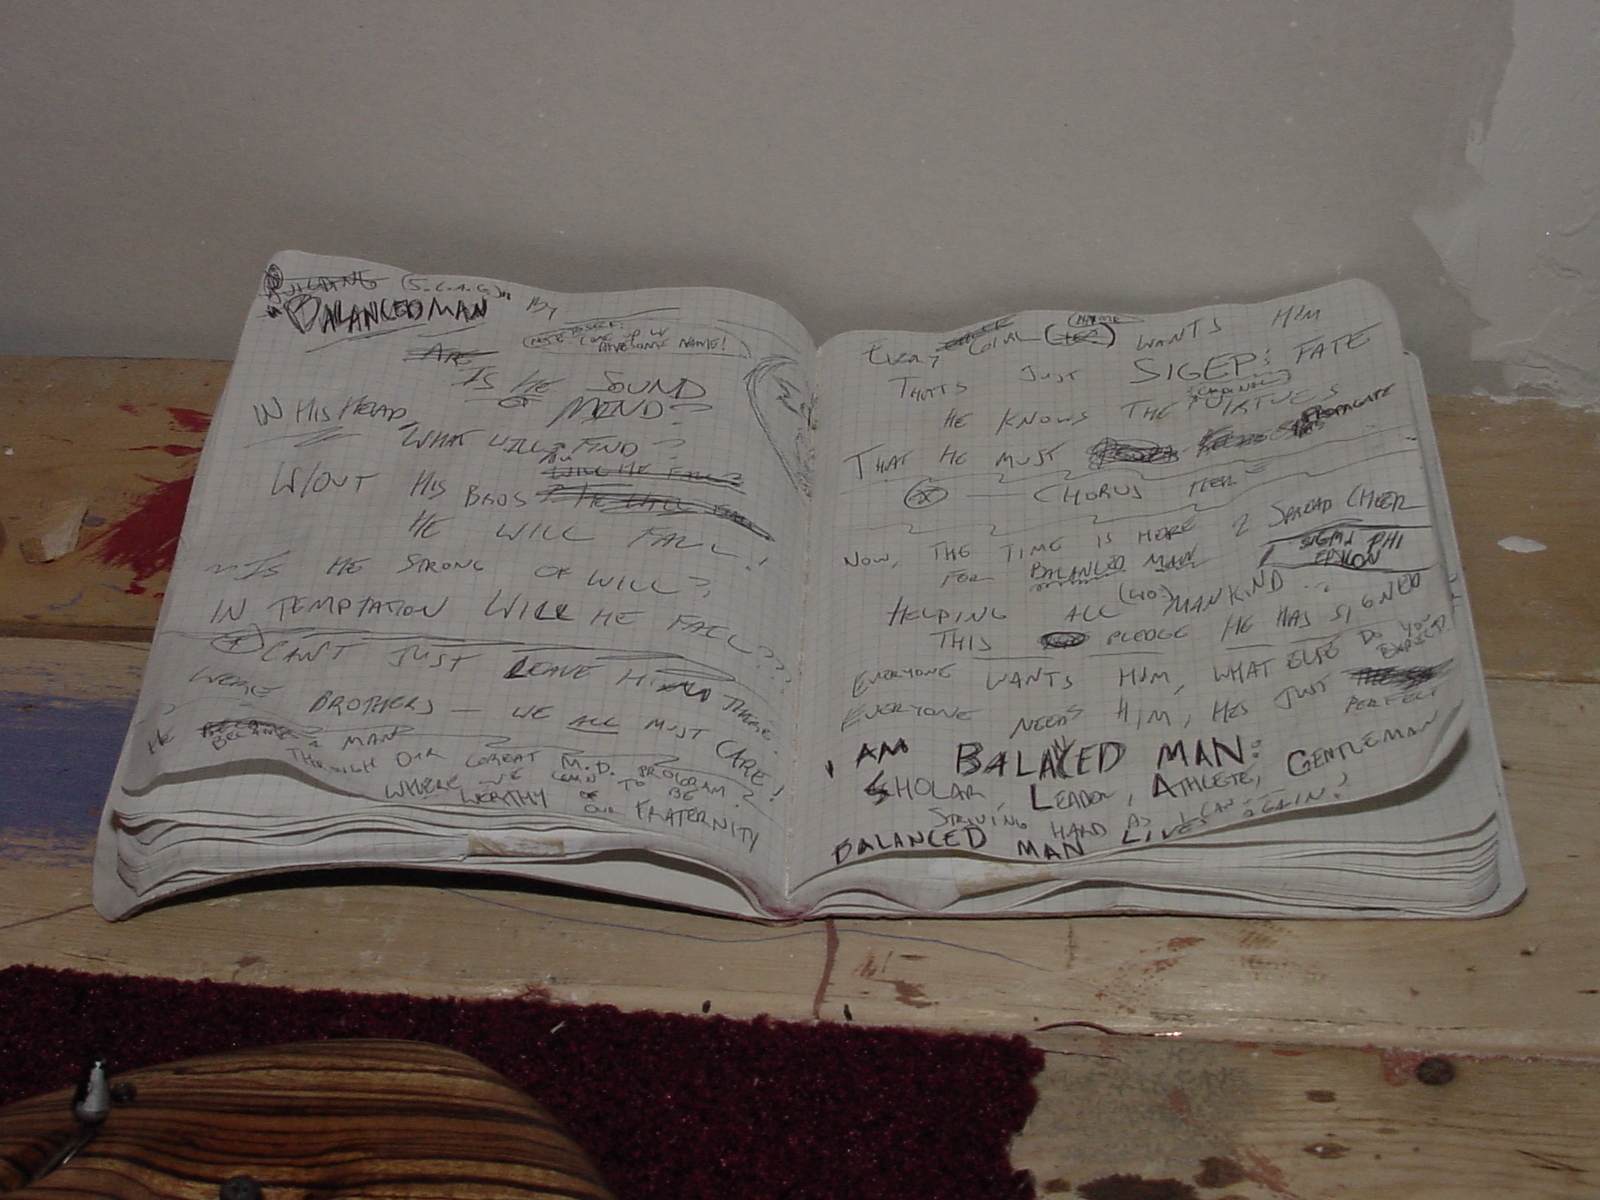 BUILDING (S.L.A.G.)"
"BALANCED MAN By
AWESOME NAME!
ARE
IS HE SOUND
OF MIND?
IN HIS HEAD,
WHAT WILL I FIND?
WILL HE FALL?
W/OUT HIS BROS HE WILL FALL
HE WILL FALL!
IS HE STRONG OF WILL?
IN TEMPTATION WILL HE FALL???
CAN'T JUST LEAVE HIM THERE.
WERE BROTHERS — WE ALL MUST CARE!
HE BECAME A MAN
THROUGH OUR GREAT M.D. PROGRAM
WHERE WE LEARN TO BE
WORTHY OF OUR FRATERNITY
EVERY GIRL (NAME) WANTS HIM
THATS JUST SIGEP: FATE
HE KNOWS THE CARDINAL VIRTUES
THAT HE MUST PROPAGATE
CHORUS HERE
NOW, THE TIME IS HERE 2 SPREAD CHEER
FOR BALANCED MAN SIGMA PHI EPSILON
HELPING ALL MANKIND
THIS PLEDGE HE HAS SIGNED
EVERYONE WANTS HIM, WHAT ELSE DO YOU EXPECT!
EVERYONE NEEDS HIM, HES JUST PERFECT
I AM BALANCED MAN:
SCHOLAR, LEADER, ATHLETE, GENTLEMAN
STRIVING HARD AS I CAN
BALANCED MAN LIVES AGAIN!